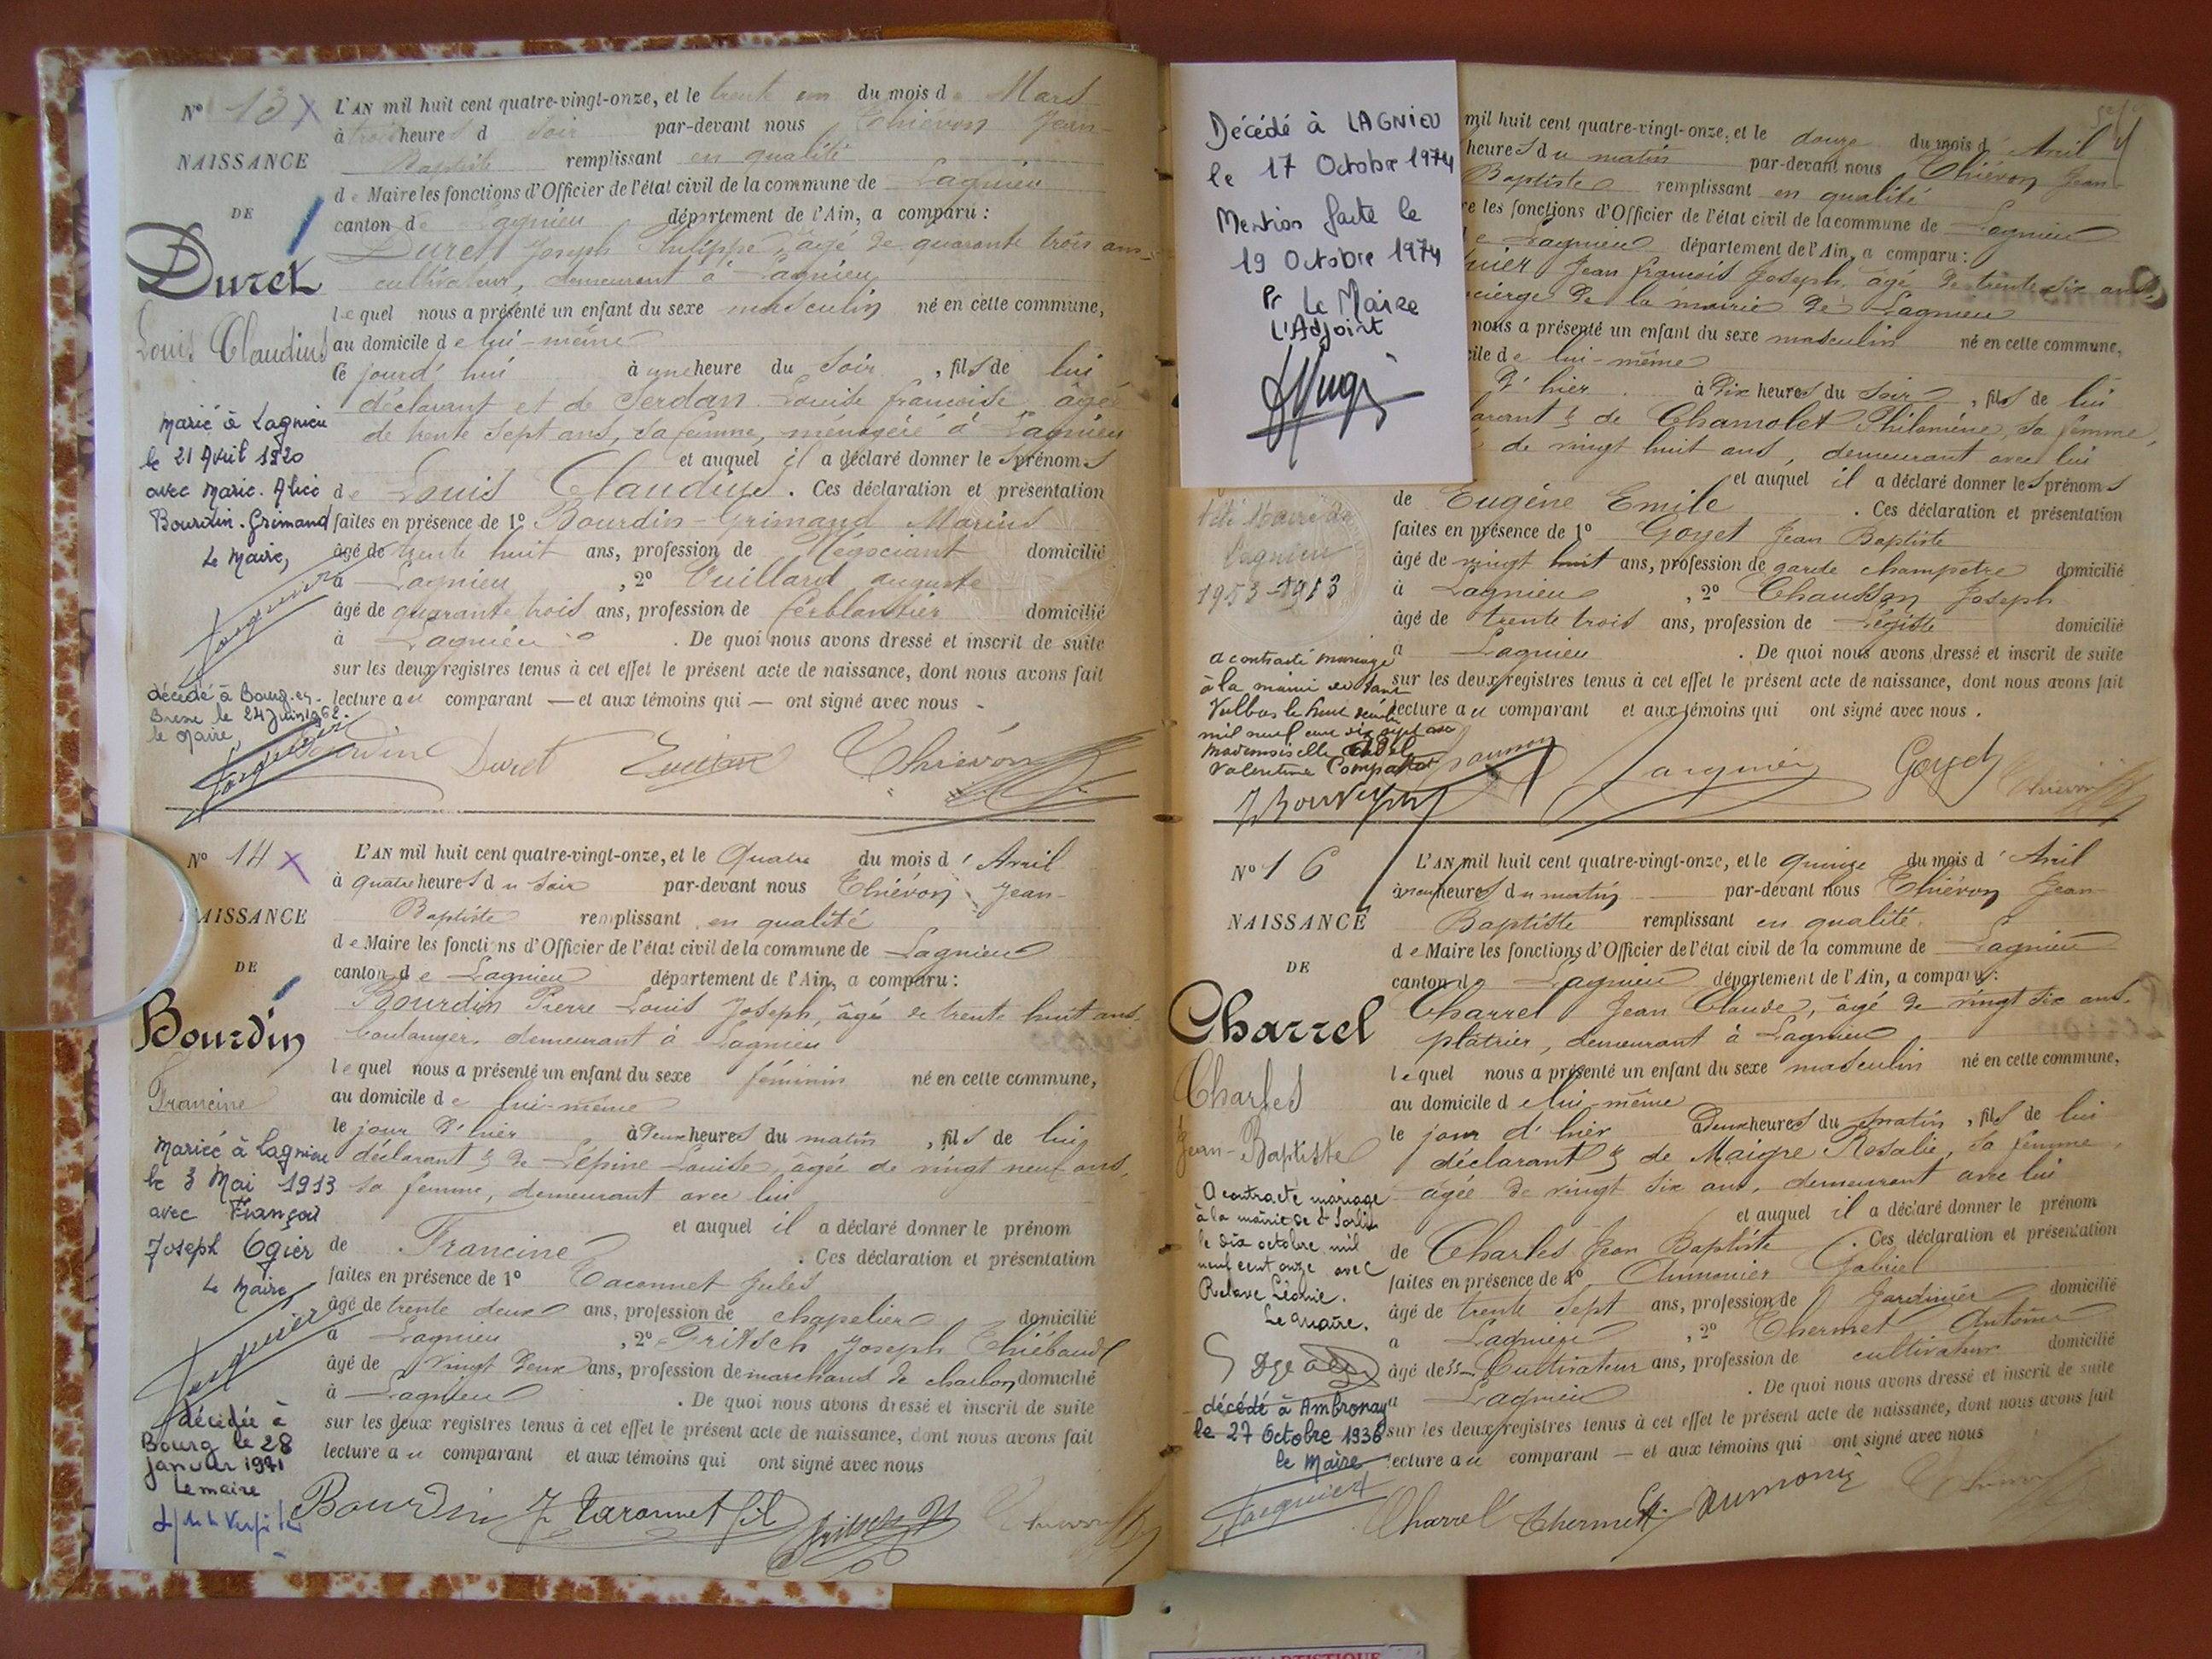 N° 13
L'AN mil huit cent quatre-vingt-onze, et le trente un du mois de Mars
à trois heures d soir par-devant nous Thiévon Jean-
NAISSANCE
Baptiste remplissant en qualité
de Maire les fonctions d'Officier de l'état civil de la commune de Lagnieu
DE
canton de Lagnieu département de l'Ain, a comparu :
Duret Joseph Philippe, âgé de quarante trois ans
Duret
cultivateur, demeurant à Lagnieu
lequel nous a présenté un enfant du sexe masculin né en cette commune,
Louis Claudius
au domicile de lui-même
Ce jourd'hui à une heure du soir, fils de lui
déclarant et de Serdan Louise francoise âgée
de trente sept ans, sa femme, ménagère à Lagnieu
et auquel il a déclaré donner les prénoms
de Louis Claudius. Ces déclaration et présentation
faites en présence de 1° Bourdin-Grimaud Marius
âgé de trente huit ans, profession de Négociant domicilié
à Lagnieu, 2° Vuillard auguste
âgé de quarante trois ans, profession de ferblantier domicilié
à Lagnieu. De quoi nous avons dressé et inscrit de suite
sur les deux registres tenus à cet effet le présent acte de naissance, dont nous avons fait
lecture au comparant — et aux témoins qui — ont signé avec nous -
Marié à Lagnieu
le 21 Avril 1920
avec Marie-Alice
Bourdin-Grimaud
Le Maire,
décédé à Bourg-en-
Bresse le 24 Juin 1962.
le Maire,
Bourdin Duret Thiévon
N° 14
L'AN mil huit cent quatre-vingt-onze, et le Quatre du mois d'Avril
à quatre heures du soir par-devant nous Thiévon Jean-
NAISSANCE
Baptiste remplissant en qualité
de Maire les fonctions d'Officier de l'état civil de la commune de Lagnieu
DE
canton de Lagnieu département de l'Ain, a comparu :
Bourdin Pierre Louis Joseph, âgé de trente huit ans
Bourdin
boulanger, demeurant à Lagnieu
lequel nous a présenté un enfant du sexe féminin né en cette commune,
Francine
au domicile de lui-même
le jour d'hier à Deux heures du matin, fils de lui
déclarant & de Lépine Louise, âgée de vingt neuf ans,
sa femme, demeurant avec lui
et auquel il a déclaré donner le prénom
de Francine. Ces déclaration et présentation
faites en présence de 1° Taconnet Jules
âgé de trente deux ans, profession de chapelier domicilié
à Lagnieu, 2° Fritsch Joseph Thiébaud
âgé de vingt deux ans, profession de marchand de charbon domicilié
à Lagnieu. De quoi nous avons dressé et inscrit de suite
sur les deux registres tenus à cet effet le présent acte de naissance, dont nous avons fait
lecture au comparant et aux témoins qui ont signé avec nous
Mariée à Lagnieu
le 3 Mai 1913
avec François
Joseph Ogier
Le Maire
décédée à
Bourg le 28
janvier 1971
Le maire
Bourdin J Taconnet fils Fritsch
Décédé à LAGNIEU
le 17 Octobre 1974
Mention faite le
19 Octobre 1974
Pr Le Maire
L'Adjoint
mil huit cent quatre-vingt-onze, et le douze du mois d'Avril
heures du matin par-devant nous Thiévon Jean-
Baptiste remplissant en qualité
re les fonctions d'Officier de l'état civil de la commune de Lagnieu
e Lagnieu département de l'Ain, a comparu :
uier Jean francois Joseph, âgé de trente six ans
cierge de la mairie de Lagnieu
nous a présenté un enfant du sexe masculin né en cette commune,
cile de lui-même
d'hier à Dix heures du soir, fils de lui
larant & de Chamolet Philomène, sa femme,
de vingt huit ans, demeurant avec lui
et auquel il a déclaré donner les prénoms
de Eugène Emile. Ces déclaration et présentation
faites en présence de 1° Goyet Jean Baptiste
âgé de vingt huit ans, profession de garde champetre domicilié
à Lagnieu, 2° Chausson Joseph
âgé de trente trois ans, profession de Légiste domicilié
à Lagnieu. De quoi nous avons dressé et inscrit de suite
sur les deux registres tenus à cet effet le présent acte de naissance, dont nous avons fait
lecture au comparant et aux témoins qui ont signé avec nous.
Maire de
Lagnieu
1953-
a contracté mariage
à la mairie de
Vulbas le huit
mil neuf cent dix sept avec
Mademoiselle
Valentine
Goyet
N° 16
L'AN mil huit cent quatre-vingt-onze, et le quinze du mois d'Avril
à neuf heures du matin par-devant nous Thiévon Jean-
NAISSANCE
Baptiste remplissant en qualité
de Maire les fonctions d'Officier de l'état civil de la commune de Lagnieu
DE
canton de Lagnieu département de l'Ain, a comparu :
Charrel Jean Claude, âgé de vingt six ans.
Charrel
plâtrier, demeurant à Lagnieu
lequel nous a présenté un enfant du sexe masculin né en cette commune,
Charles
au domicile de lui-même
le jour d'hier à Deux heures du matin, fils de lui
Jean-Baptiste
déclarant & de Maigre Rosalie, sa femme,
agée de vingt six ans, demeurant avec lui
et auquel il a déclaré donner le prénom
de Charles Jean Baptiste. Ces déclaration et présentation
faites en présence de 1° Aumonier Gabriel
âgé de trente sept ans, profession de Jardinier domicilié
à Lagnieu, 2° Thermet Antoine
âgé de 33 Cultivateur ans, profession de cultivateur domicilié
à Lagnieu. De quoi nous avons dressé et inscrit de suite
sur les deux registres tenus à cet effet le présent acte de naissance, dont nous avons fait
lecture au comparant — et aux témoins qui ont signé avec nous
A contracté mariage
à la mairie de St Sorlin
le dix octobre mil
neuf cent onze avec
Relave Léonie.
Le Maire.
décédé à Ambronay
le 27 Octobre 1936
le Maire
Charrel Thermet Aumonier